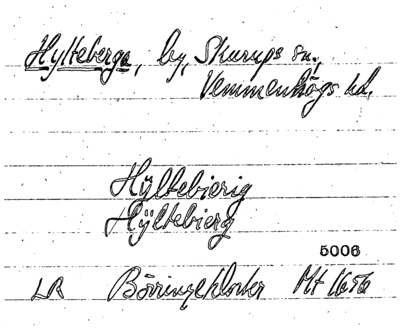 Hylteberga, by, Skurups sn,
Vemmenhögs hd.
Hÿltebierig
Hÿltebierg
5006
LR Börringekloster Mt 1656